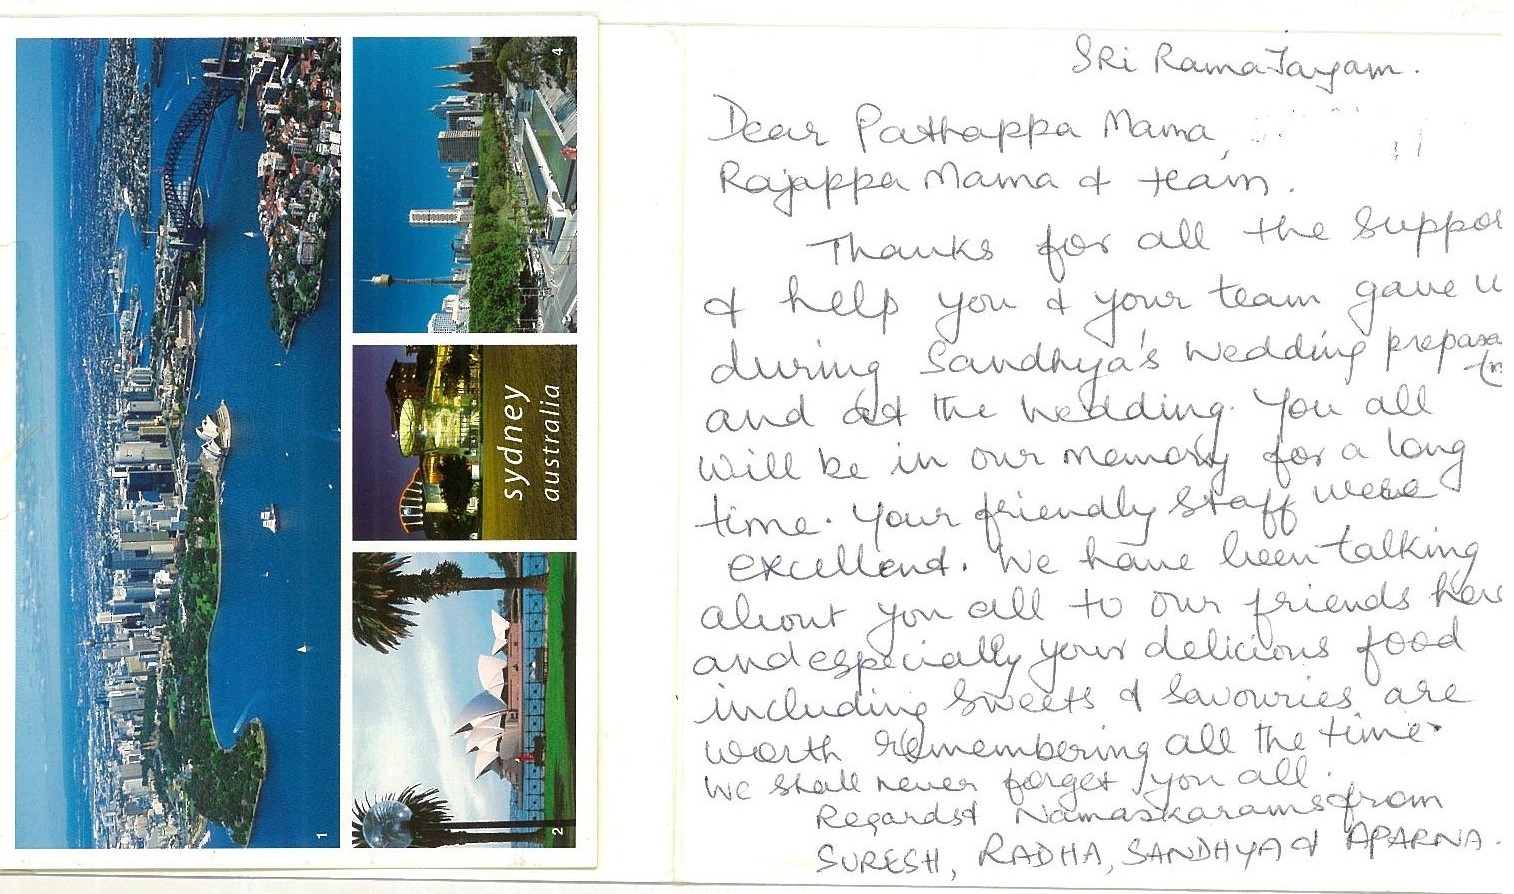 4
sydney
australia
1
2
Sri Rama Jayam.
Dear Pathappa Mama,
Rajappa Mama & team.
Thanks for all the suppor
& help you & your team gave u
during Sandhya's wedding prepara
and at the wedding. You all
will be in our memory for a long
time. Your friendly staff were
excellent. We have been talking
about you all to our friends here
and especially your delicious food
including sweets & savouries are
worth remembering all the time.
We shall never forget you all.
Regards & Namaskarams from
SURESH, RADHA, SANDHYA & APARNA.